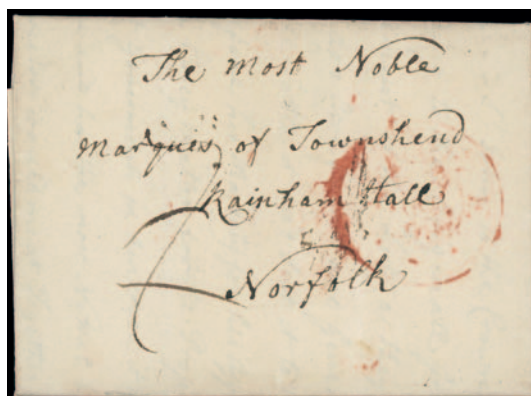 The Most Noble
Marquis of Townshend
Rainham Hall
Norfolk